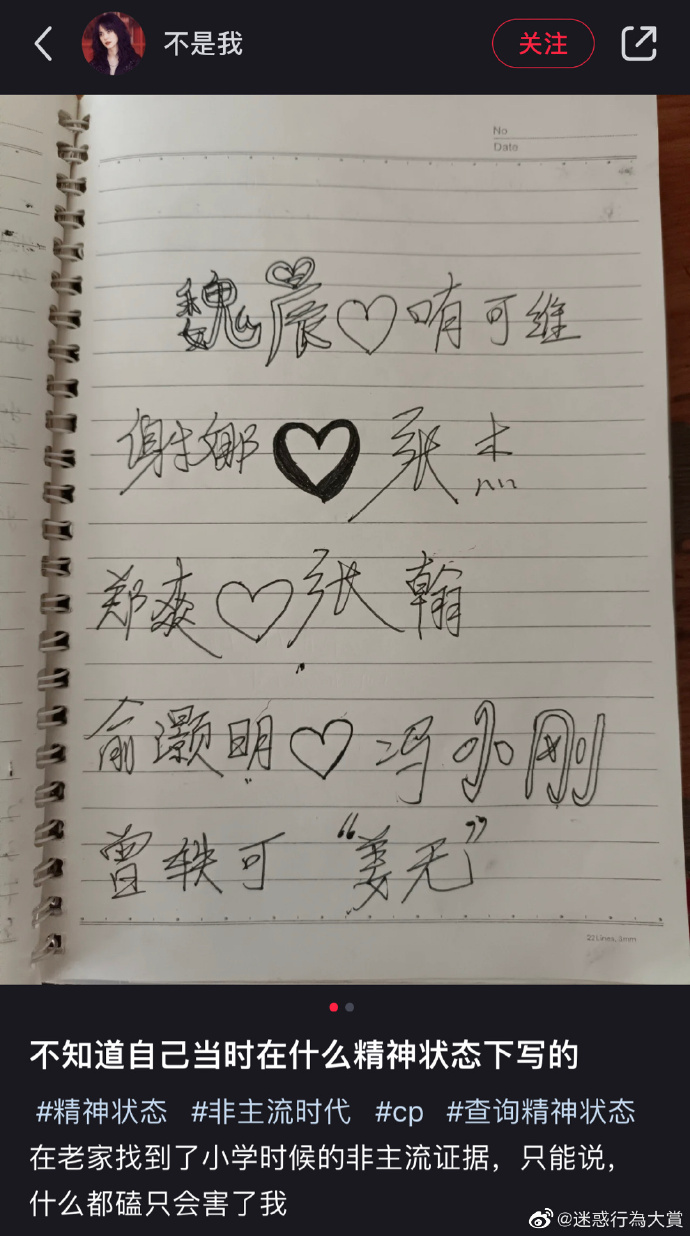 不是我
关注
No
Date
魏晨♡哊可维
谢娜♡张杰
郑爽♡张翰
俞灏明♡冯小刚
曾轶可 “姜无”
22 Lines, 8mm
不知道自己当时在什么精神状态下写的
#精神状态 #非主流时代 #cp #查询精神状态
在老家找到了小学时候的非主流证据，只能说，
什么都磕只会害了我
@迷惑行為大賞